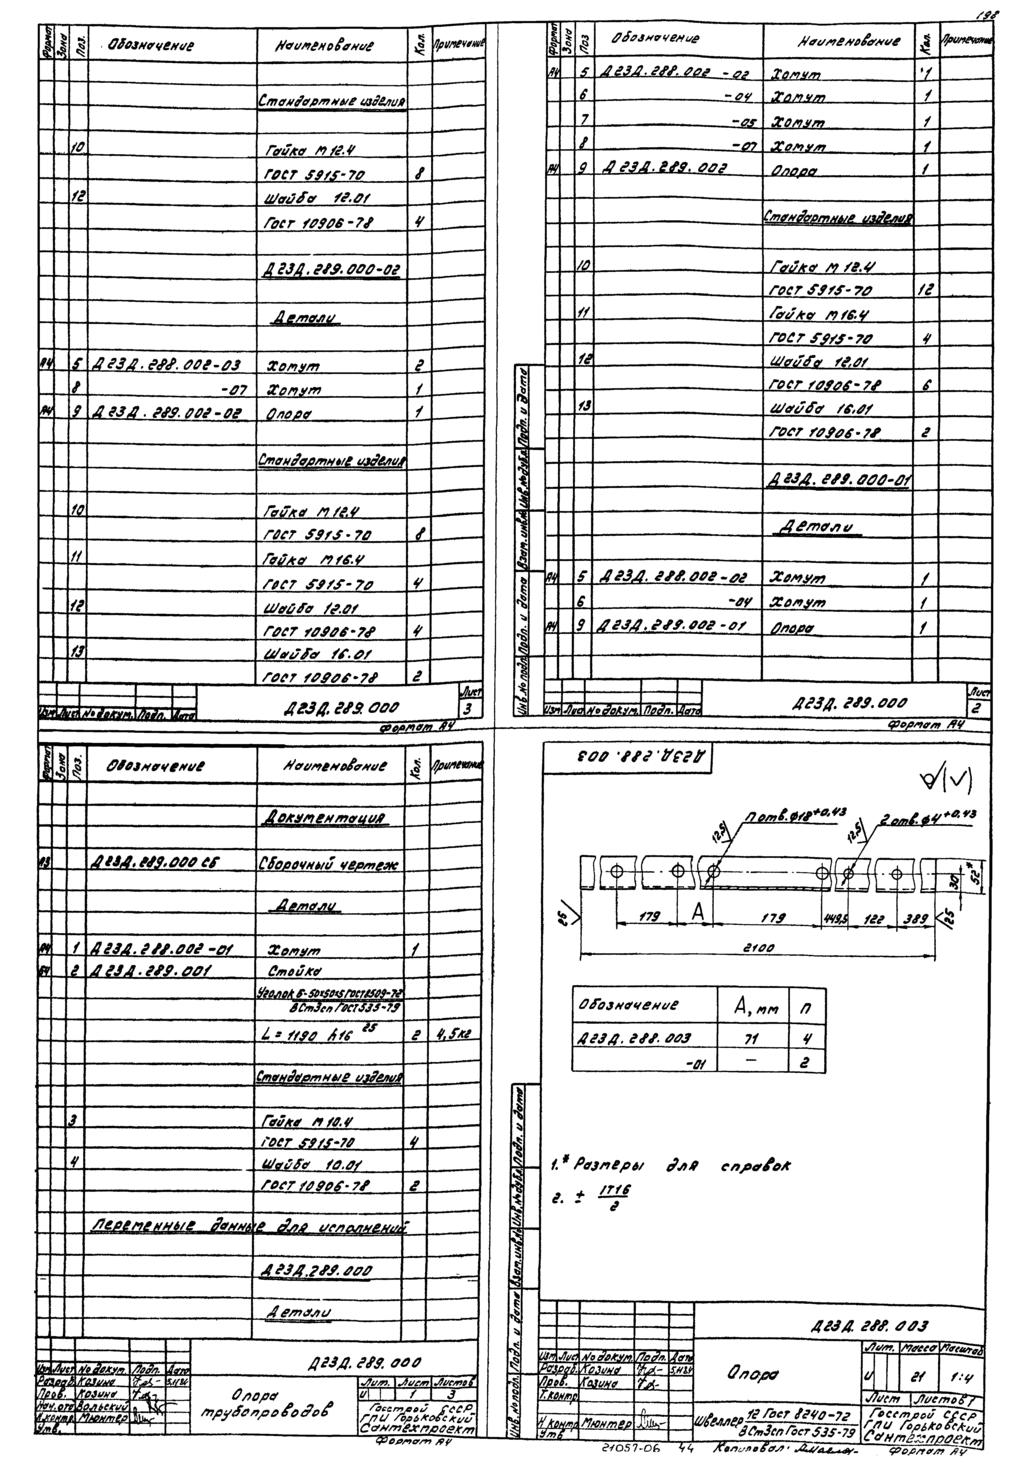 198
Формат Зона Поз. Обозначение Наименование Кол. Примечание
Стандартные изделия
10 Гайка М12.4
ГОСТ 5915-70 8
12 Шайба 12.01
ГОСТ 10906-78 4
Д23Д.289.000-02
Детали
А4 5 Д23Д.288.002-03 Хомут 2
8 -07 Хомут 1
А4 9 Д23Д.289.002-02 Опора 1
Стандартные изделия
10 Гайка М12.4
ГОСТ 5915-70 8
11 Гайка М16.4
ГОСТ 5915-70 4
12 Шайба 12.01
ГОСТ 10906-78 4
13 Шайба 16.01
ГОСТ 10906-78 2
Изм. Лист № докум. Подп. Дата
Д23Д.289.000
Лист
3
Формат А4
Формат Зона Поз Обозначение Наименование Кол. Примечание
А4 5 Д23Д.288.002 -02 Хомут 1
6 -04 Хомут 1
7 -05 Хомут 1
8 -07 Хомут 1
А4 9 Д23Д.289.002 Опора 1
Стандартные изделия
10 Гайка М12.4
ГОСТ 5915-70 12
11 Гайка М16.4
ГОСТ 5915-70 4
12 Шайба 12.01
ГОСТ 10906-78 6
13 Шайба 16.01
ГОСТ 10906-78 2
Д23Д.289.000-01
Детали
А4 5 Д23Д.288.002-02 Хомут 1
6 -04 Хомут 1
А4 9 Д23Д.289.002-01 Опора 1
Инв.№ подл. Подп. и дата Взам.инв.№ Инв.№ дубл. Подп. и дата
Изм Лист № докум. Подп. Дата
Д23Д.289.000
Лист
2
Формат А4
Формат Зона Поз. Обозначение Наименование Кол. Примечание
Документация
А3 Д23Д.289.000 СБ Сборочный чертеж
Детали
А4 1 Д23Д.288.002-01 Хомут 1
БЧ 2 Д23Д.289.001 Стойка
Уголок Б-50х50х5 ГОСТ 8509-72
ВСт3сп ГОСТ 535-79
L = 1190 h16 25 2 4,5кг
Стандартные изделия
3 Гайка М10.4
ГОСТ 5915-70 4
4 Шайба 10.01
ГОСТ 10906-78 2
Переменные данные для исполнений
Д23Д.289.000
Детали
Изм. Лист № докум. Подп. Дата
Разраб. Козина
Пров. Козина
Нач.отд Вольский
Н.контр. Мюнтер
Утв.
Д23Д.289.000
Опора
трубопроводов
Лит. Лист Листов
И 1 3
Госстрой СССР
ГПИ Горьковский
Сантехпроект
Формат А4
Д23Д.288.003
(√)
n отв. ϕ18+0,43
2 отв. ϕ4+0,43
12,5
12,5
25
179 А 179 449,5 122 389
2100
30
52*
25
Обозначение А, мм n
Д23Д.288.003 71 4
-01 — 2
1.* Размеры для справок
2. ± IT16
2
Инв.№ подл. Подп. и дата Взам.инв.№ Инв.№ дубл. Подп. и дата
Изм Лист № докум. Подп. Дата
Разраб. Козина
Пров. Козина
Т.контр.
Н.контр Мюнтер
Утв
Д23Д.288.003
Опора
Лит. Масса Масштаб
И 21 1:4
Лист Листов 1
Швеллер 12 ГОСТ 8240-72
ВСт3сп ГОСТ 535-79
Госстрой СССР
ГПИ Горьковский
Сантехпроект
21057-06 44 Копировал: Формат А4